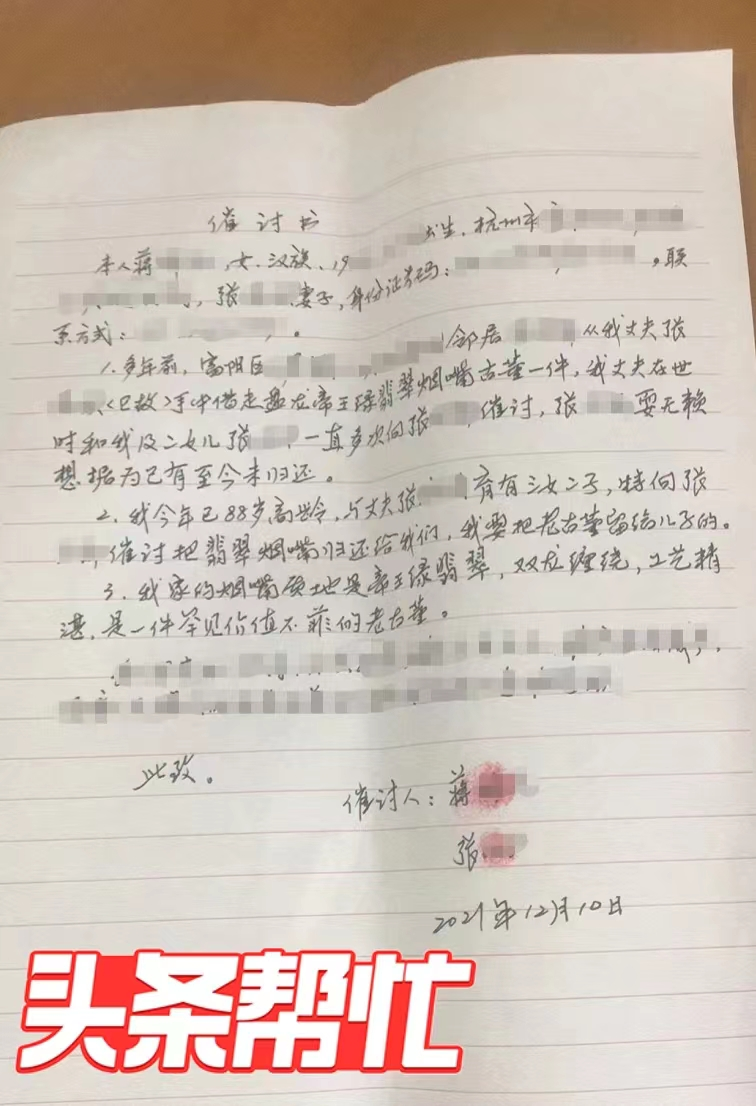 催讨书
本人蒋 ,女.汉族、19 出生.杭州市
,张 妻子,身份证号码: , 。联
系方式: 。
1.多年前,富阳区 邻居 ,从我丈夫张
(已故)手中借走盘龙帝王绿翡翠烟嘴古董一件,我丈夫在世
时和我及二女儿张 一直多次向张 催讨,张 耍无赖
想据为己有至今未归还。
2.我今年已88岁高龄,与丈夫张 育有三女二子,特向张
,催讨把翡翠烟嘴归还给我们,我要把老古董留给儿子的。
3.我家的烟嘴质地是帝王绿翡翠,双龙缠绕,工艺精
湛.是一件罕见价值不菲的老古董。
此致。
催讨人:蒋
张
2021年12月10日
头条帮忙